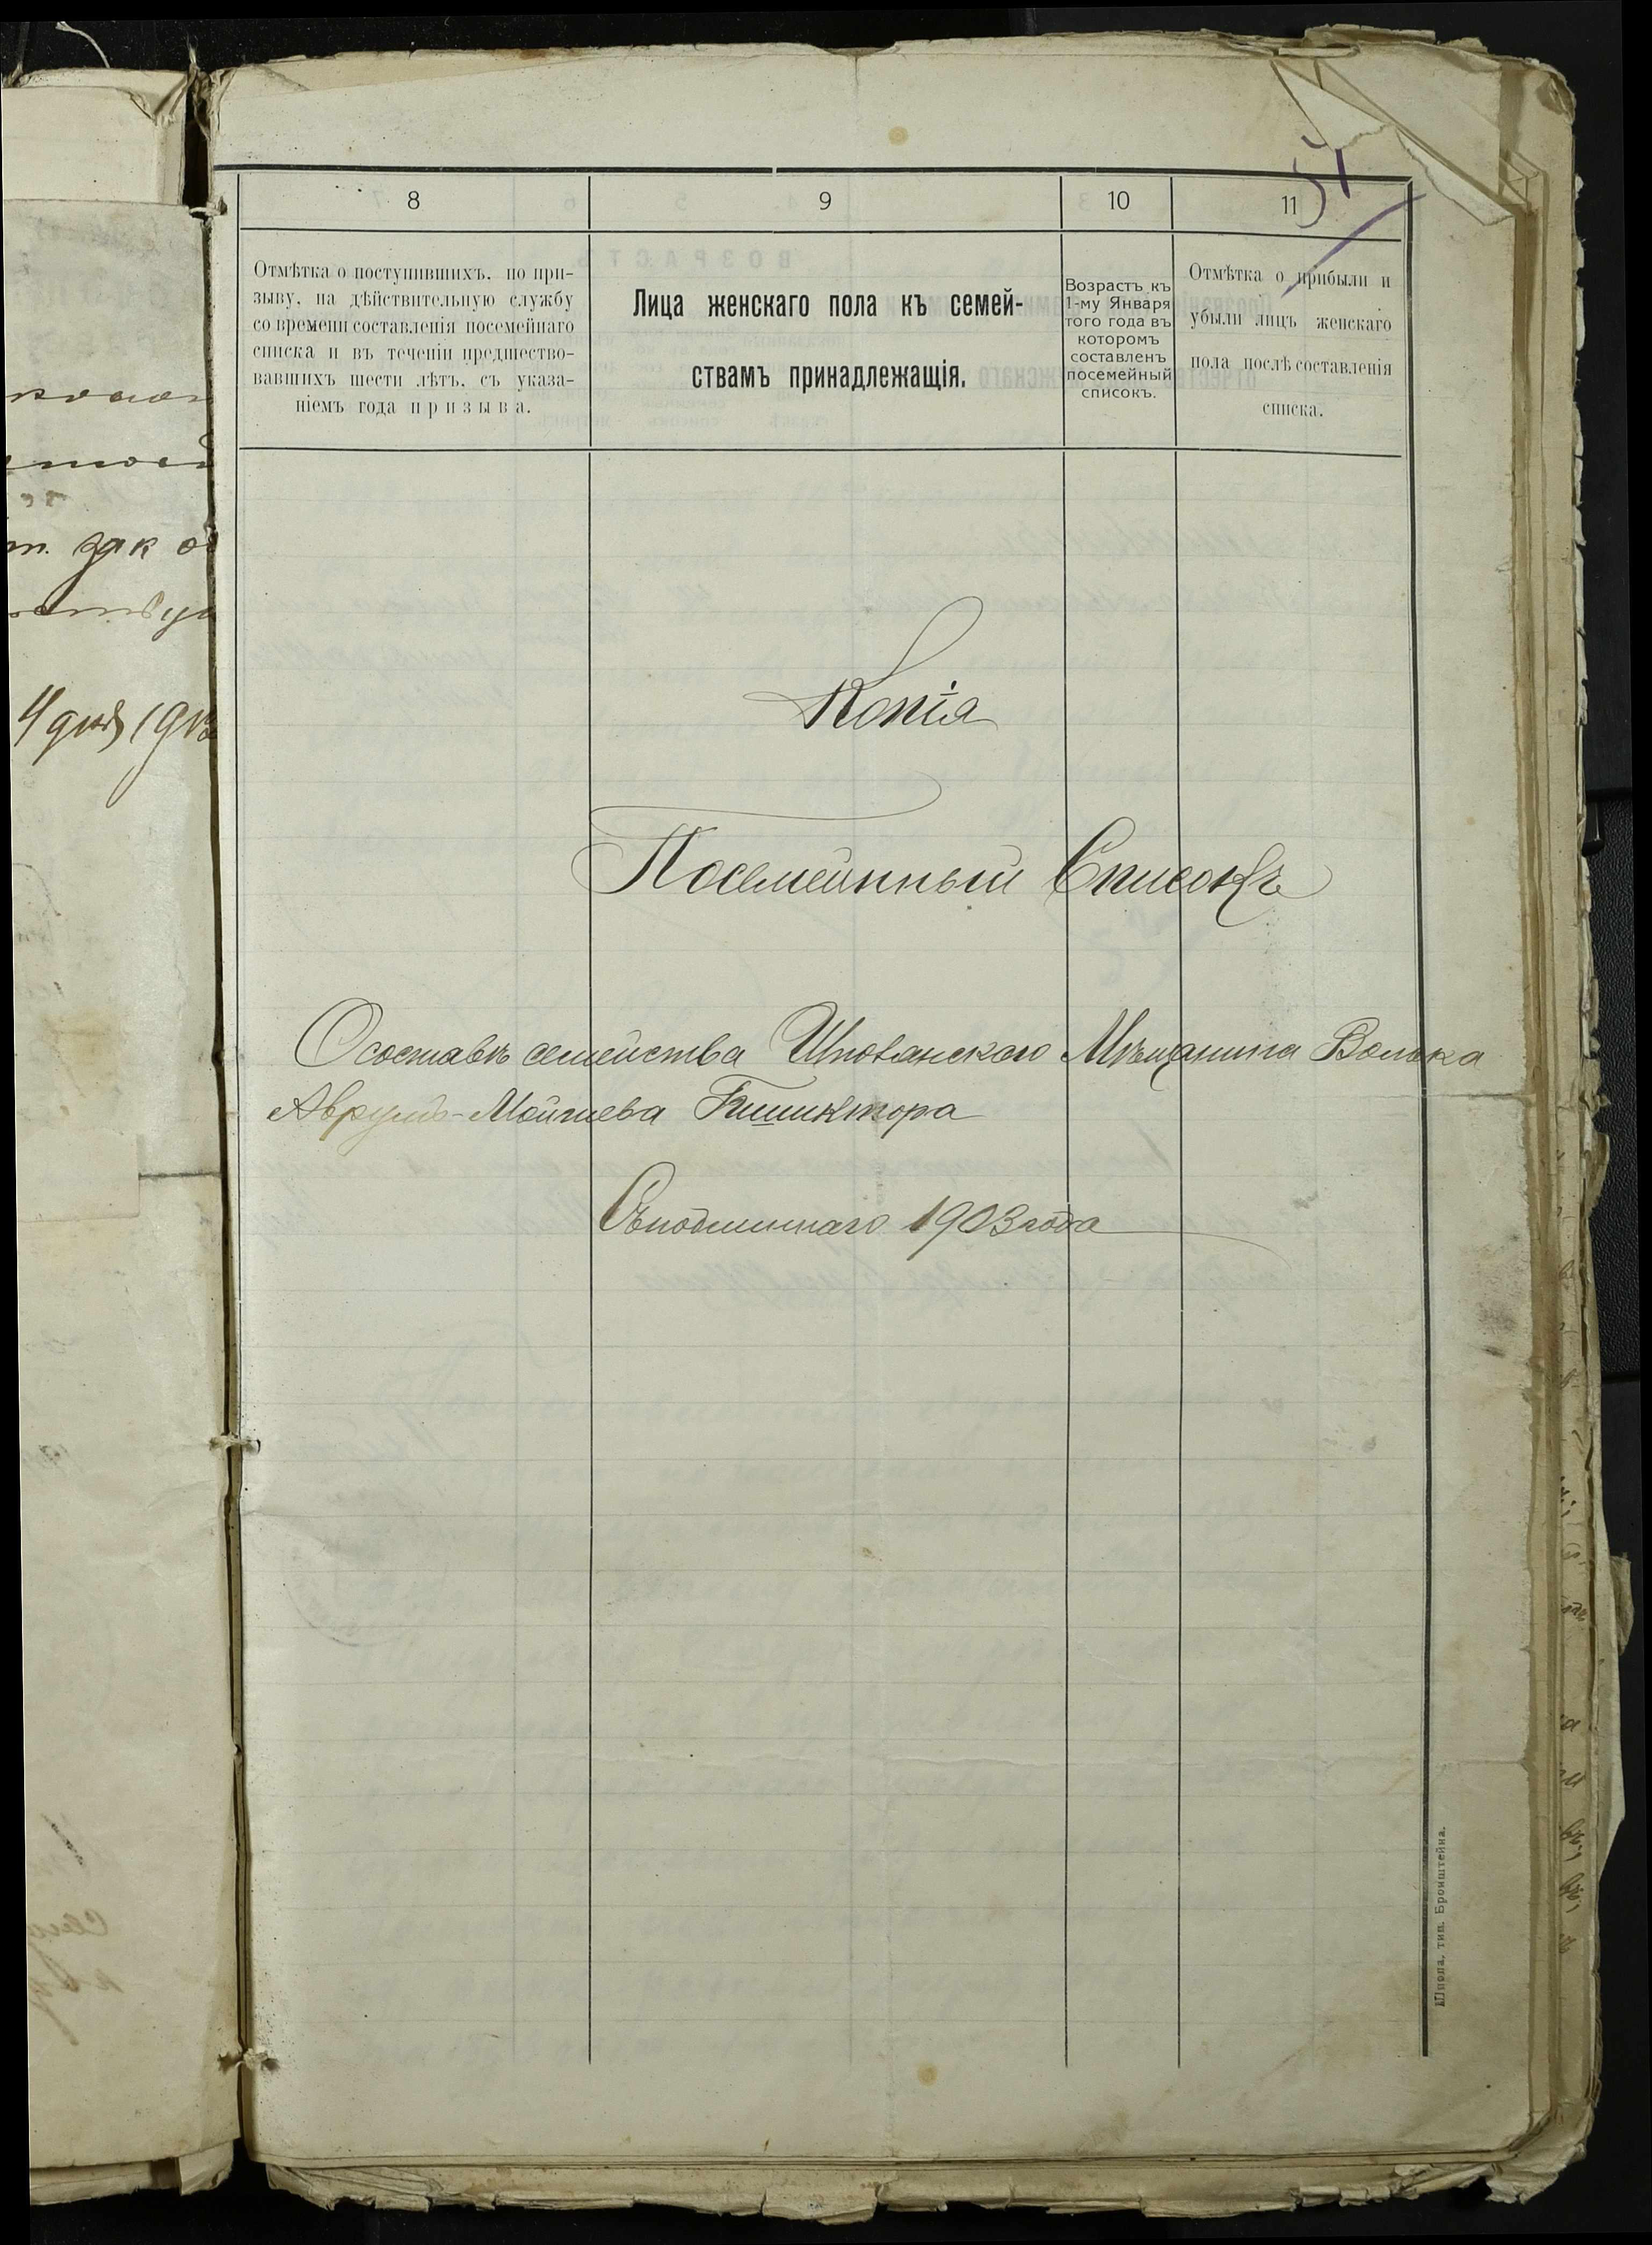 51
8 9 10 11
Отмѣтка о поступившихъ, по при-
зыву, на дѣйствительную службу
со времени составленія посемейнаго
списка и въ теченіи предшество-
вавшихъ шести лѣтъ, съ указа-
ніемъ года призыва.
Лица женскаго пола къ семей-
ствамъ принадлежащія.
Возрастъ къ
1-му Января
того года въ
которомъ
составленъ
посемейный
списокъ.
Отмѣтка о прибыли и
убыли лицъ женскаго
пола послѣ составленія
списка.
Копія
Посемейный Списокъ
О составѣ семейства Шполянскаго Мѣщанина Волька
Аврумъ-Мойшева
Съ подлиннаго 1903 года
Шпола, тип. Бронштейна.